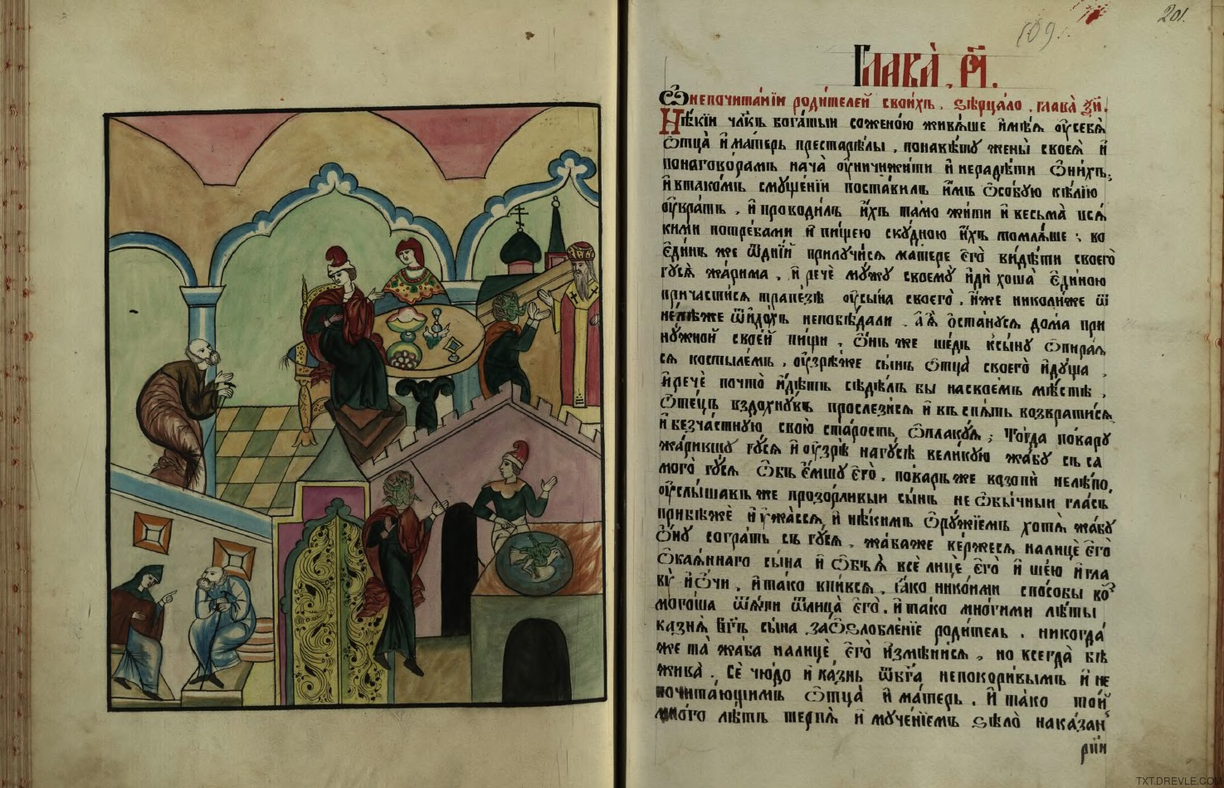 109.
201.
Глава̀ . РИ҃ .
Ѿ непочита́нїи роди́телей свои́хъ . ѕе́рцало . глава̀
Нѣ́кїи чл҃къ бога́тыи соженою живѧ́ше и҆мѣ́ѧ оу҆себѧ̀
ѻ҆тца̀ и҆ ма́терь престарѣ́лы . понавѣ́тꙋ жены̀ своеѧ̀ и҆
понагово́рамъ нача̀ оу҆ничижи́ти и҆ нерадѣ́ти ѡ҆ни́хъ ,
и҆ втако́мъ смꙋще́нїи поста́вилъ и҆́мъ ѻ҆со́бꙋю кѣ́лїю
оу҆вра́тъ , и҆ прово́дилъ и҆́хъ та́мо жи́ти и҆ весьма̀ всѧ́
кими потре́бами и҆ пи́щею скꙋ́дною и҆́хъ томлѧ́ше : во
є҆ди́нъ же ѿ дні́й прилꙋчи́сѧ ма́тере є҆гѡ̀ ви́дѣти своего̀
гꙋ́сѧ жа́рима , и҆ речѐ мꙋ́жꙋ своемꙋ̀ и҆дѝ хоша̀ є҆ди́ною
причасти́сѧ трапе́зѣ оу҆сы́на своего̀ , и҆́же николи́же ѿ
нели́же ѿидо́хъ непобѣ́дали . а҆ а҆́зъ ѡ҆ста́нꙋсѧ до́ма при
нꙋ́жной свое́й пи́щи . ѻ҆́нъ же ше́дъ ксы́нꙋ ѡ҆пира́ѧ
сѧ костыле́мъ , оу҆зрѣ́же сы́нъ ѻ҆тца̀ своего̀ и҆дꙋ́ща ,
и҆ речѐ почто̀ и҆́детъ сидѣ́лъ бы насвое́мъ мѣ́стѣ .
ѻ҆те́цъ вздохнꙋ́въ прослези́сѧ и҆ въспѧ́ть возврати́сѧ
и҆ безча́стнꙋю свою̀ ста́рость ѡ҆пла́кꙋѧ ; Тогда̀ по́варꙋ
жа́рившꙋ гꙋ́сѧ и҆ оу҆зрѣ̀ нагꙋ́сѣ вели́кꙋю жа́бꙋ съ са
мого̀ гꙋ́сѧ ѻ҆бъе́мшꙋ є҆го̀ , по́варъ же возопѝ нелѣ́по ,
оу҆слы́шавъ же прозо́рливыи сы́нъ не ѻ҆бы́чныи гла́съ
прибѣжѐ и҆ оу҆жа́ссѧ и҆ нѣ́кимъ ѻ҆рꙋ́жїемъ хотѧ̀ жа́бꙋ
ѻ҆́нꙋ согра́ть съ гꙋ́сѧ . жа́ба же ве́ржесѧ налицѐ є҆гѡ̀
ѻ҆каѧ́ннаго сы́на и҆ ѻ҆б̾ѧ́ всѐ лицѐ є҆гѡ̀ и҆ ше́ю и҆ гла
вꙋ̀ и҆ ѻ҆́чи , и҆ та́ко впи́всѧ , ꙗ҆́ко нико́ими спо́собы воз
мого́ша ѿѧ́ти ѿ лица̀ є҆гѡ̀ . и҆ та́ко мно́гими лѣ́ты
казнѧ̀ бг҃ъ сы́на заѡ҆ѕлобле́нїе роди́тель . никогда́
же та̀ жа́ба налицѐ є҆гѡ̀ и҆змѣни́сѧ , но всегда̀ бѣ̀
жива̀ . Сѐ чю́до и҆ ка́знь ѿ бг҃а непокори́вымъ и҆ не
почита́ющимъ ѻ҆тца̀ и҆ ма́терь . И҆ та́ко то́й
мно́го лѣ́тъ терпѧ̀ и҆ мꙋче́нїемъ ѕѣлѡ̀ нака́зан
рїй
TXT.DREVLE.COM